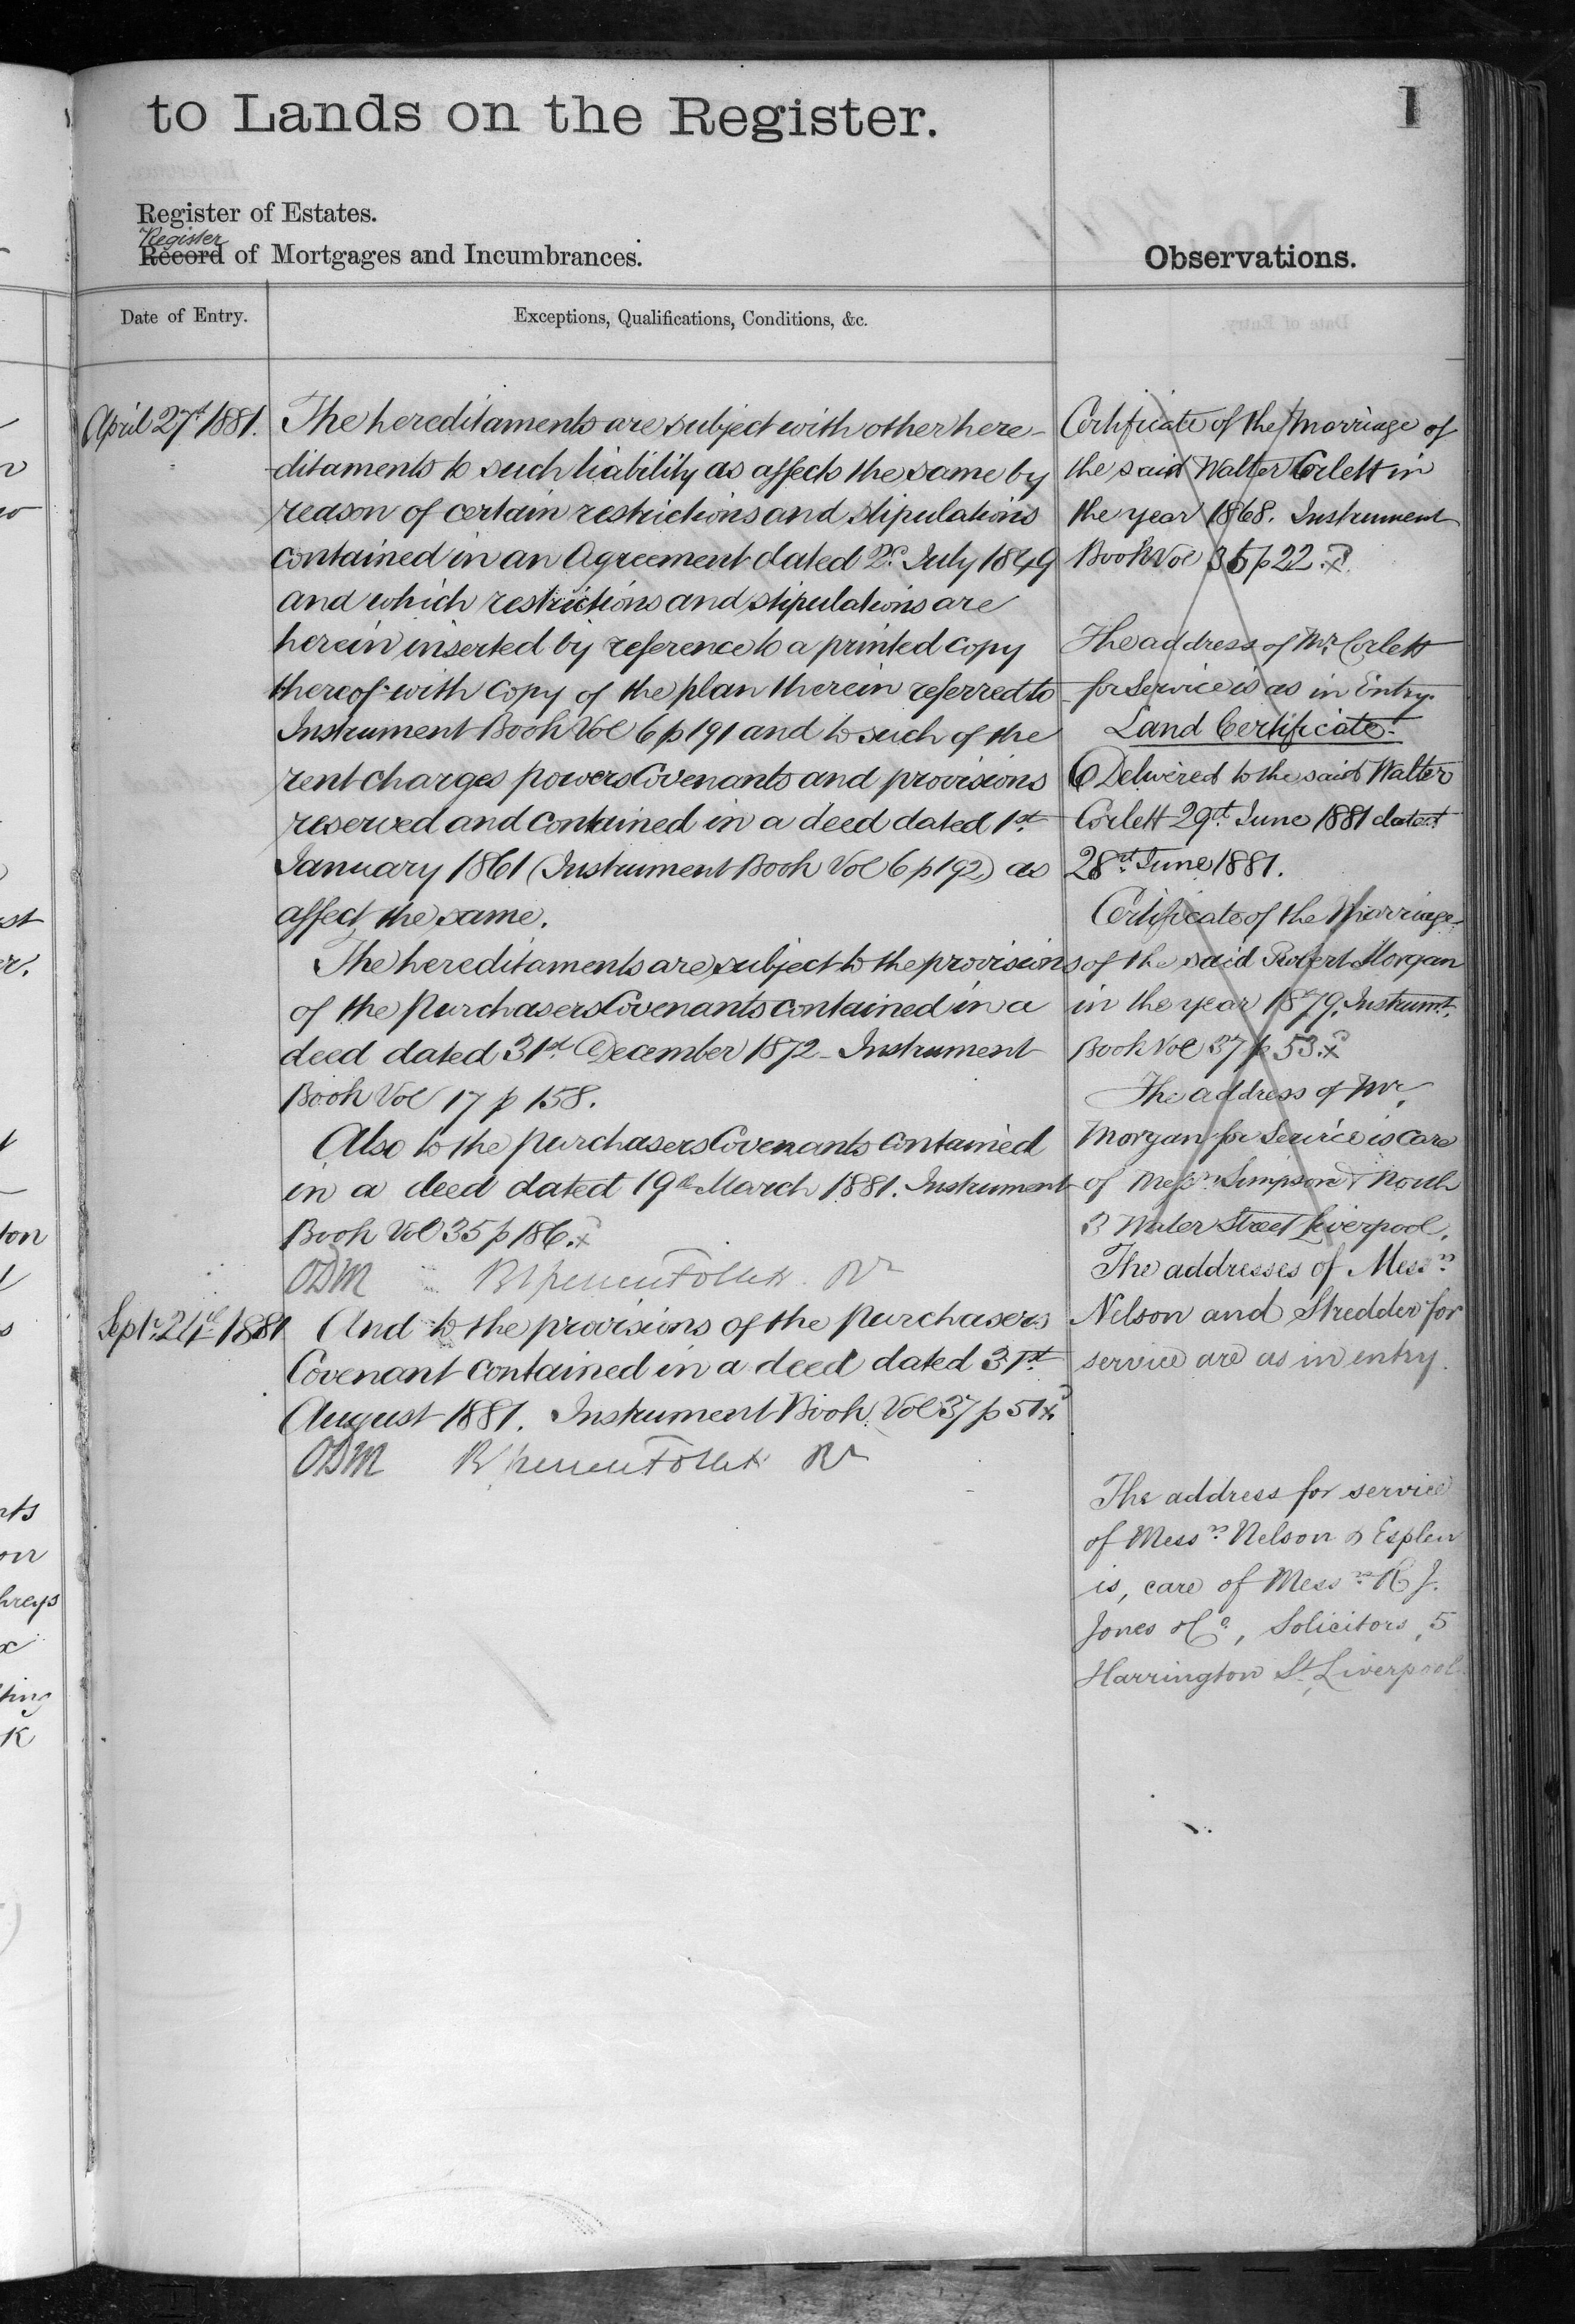 to Lands on the Register.
1
Register of Estates.
Register
Record of Mortgages and Incumbrances.
Observations.
Date of Entry.
Exceptions, Qualifications, Conditions, &c.
April 27th 1881.
The hereditaments are subject with other here-
ditaments to such liability as affects the same by
reason of certain restrictions and stipulations
contained in an Agreement dated 2d. July 1849
and which restrictions and stipulations are
herein inserted by reference to a printed copy
thereof with copy of the plan therein referred to
Instrument Book Vol 6 p 191 and to such of the
rent charges powers Covenants and provisions
reserved and contained in a deed dated 1st
January 1861 (Instrument Book Vol 6 p 192) as
affect the same.
The hereditaments are subject to the provisions
of the purchasers Covenants contained in a
deed dated 31st December 1872 - Instrument
Book Vol 17 p 158.
Also to the purchasers Covenants contained
in a deed dated 19th March 1881. Instrument
Book Vol 35 p 186.x
ODM
Septr. 24th 1881
And to the provisions of the purchasers
Covenant contained in a deed dated 31st
August 1881. Instrument Book Vol 37 p 51x
ODM
Certificate of the Marriage of
the said Walter Corlett in
the year 1868. Instrument
Book Vol 35 p 22.x
The address of Mr. Corlett
for Service is as in Entry.
Land Certificate.
Delivered to the said Walter
Corlett 29th June 1881 dated
28th June 1881.
Certificate of the Marriage
of the said Robert Morgan
in the year 1879. Instrumt.
Book Vol 37 p 53.x
The address of Mr.
Morgan for Service is Care
of Messrs Simpson & North
3 Water Street Liverpool.
The addresses of Messrs
Nelson and Stredder for
service are as in entry.
The address for service
of Messrs Nelson & Esplen
is, care of Messrs R J.
Jones & Co, Solicitors, 5
Harrington St, Liverpool